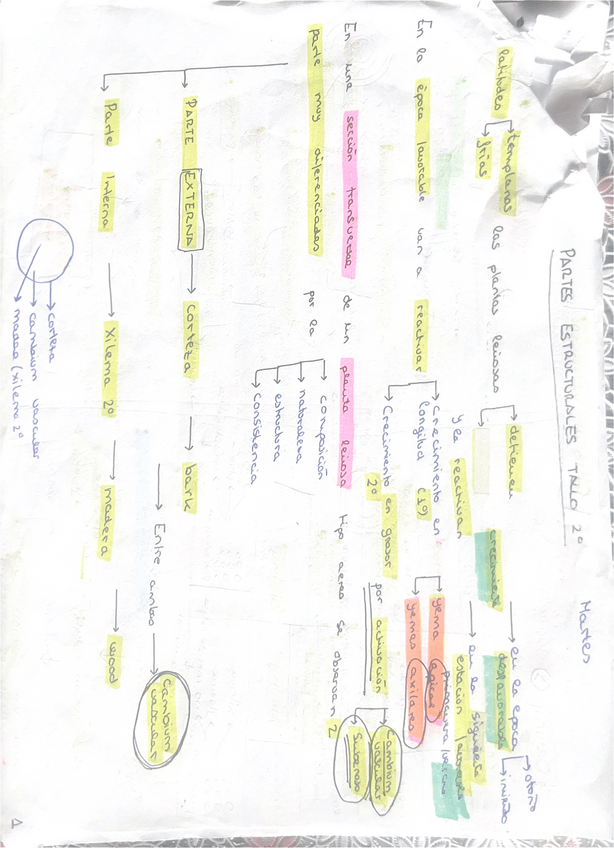 Martes
PARTES ESTRUCTURALES TALLO 2º
latitudes templadas las plantas leñosas detienen crecimiento en la época otoño
frías desfavorable invierno
y la reactivan en la siguiente
estación favorable
primavera/verano
En la época favorable van a reactivar Crecimiento en yema apical
longitud (1º) yemas axilares
Crecimiento en grosor por activación Cambium vascular
2º Suberoso
En una sección transversal de un planta leñosa tipo aereo se observan 2
parte muy diferenciadas por la composición
naturaleza
estructura
consistencia
PARTE EXTERNA Corteza bark
Entre ambas Cambium
vascular
Parte Interna Xilema 2º madera wood
corteza
cambium vascular
madera (xilema 2º
1